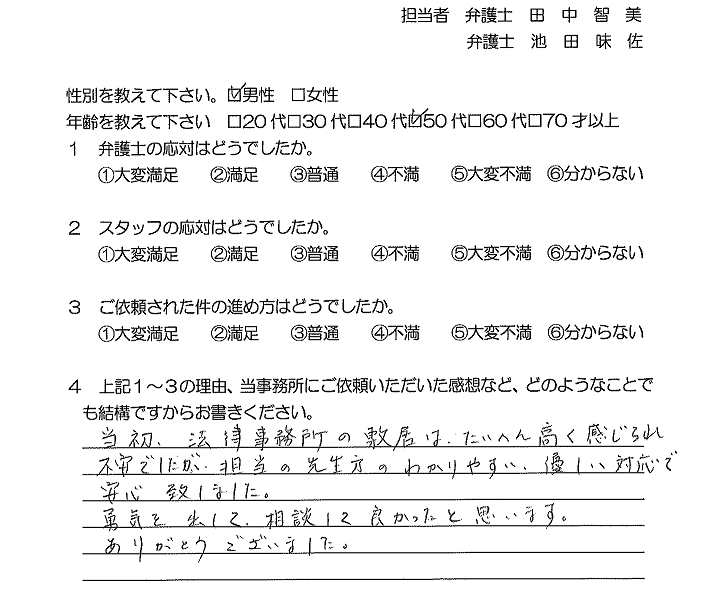 担当者 弁護士 田 中 智 美
弁護士 池 田 味 佐
性別を教えて下さい。☑男性 □女性
年齢を教えて下さい □20代□30代□40代☑50代□60代□70才以上
1 弁護士の応対はどうでしたか。
①大変満足 ②満足 ③普通 ④不満 ⑤大変不満 ⑥分からない
2 スタッフの応対はどうでしたか。
①大変満足 ②満足 ③普通 ④不満 ⑤大変不満 ⑥分からない
3 ご依頼された件の進め方はどうでしたか。
①大変満足 ②満足 ③普通 ④不満 ⑤大変不満 ⑥分からない
4 上記1~3の理由、当事務所にご依頼いただいた感想など、どのようなことで
も結構ですからお書きください。
当初、法律事務所の敷居は、たいへん高く感じられ
不安でしたが、担当の先生方のわかりやすい、優しい対応で
安心致しました。
勇気を出して、相談して良かったと思います。
ありがとうございました。